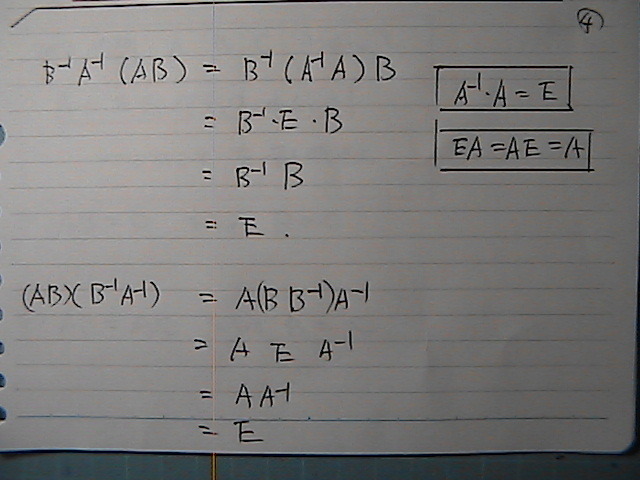 ④
B⁻¹A⁻¹(AB) = B⁻¹(A⁻¹A)B
A⁻¹·A = E
= B⁻¹·E·B
EA = AE = A
= B⁻¹ B
= E.
(AB)(B⁻¹A⁻¹) = A(B B⁻¹)A⁻¹
= A E A⁻¹
= A A⁻¹
= E